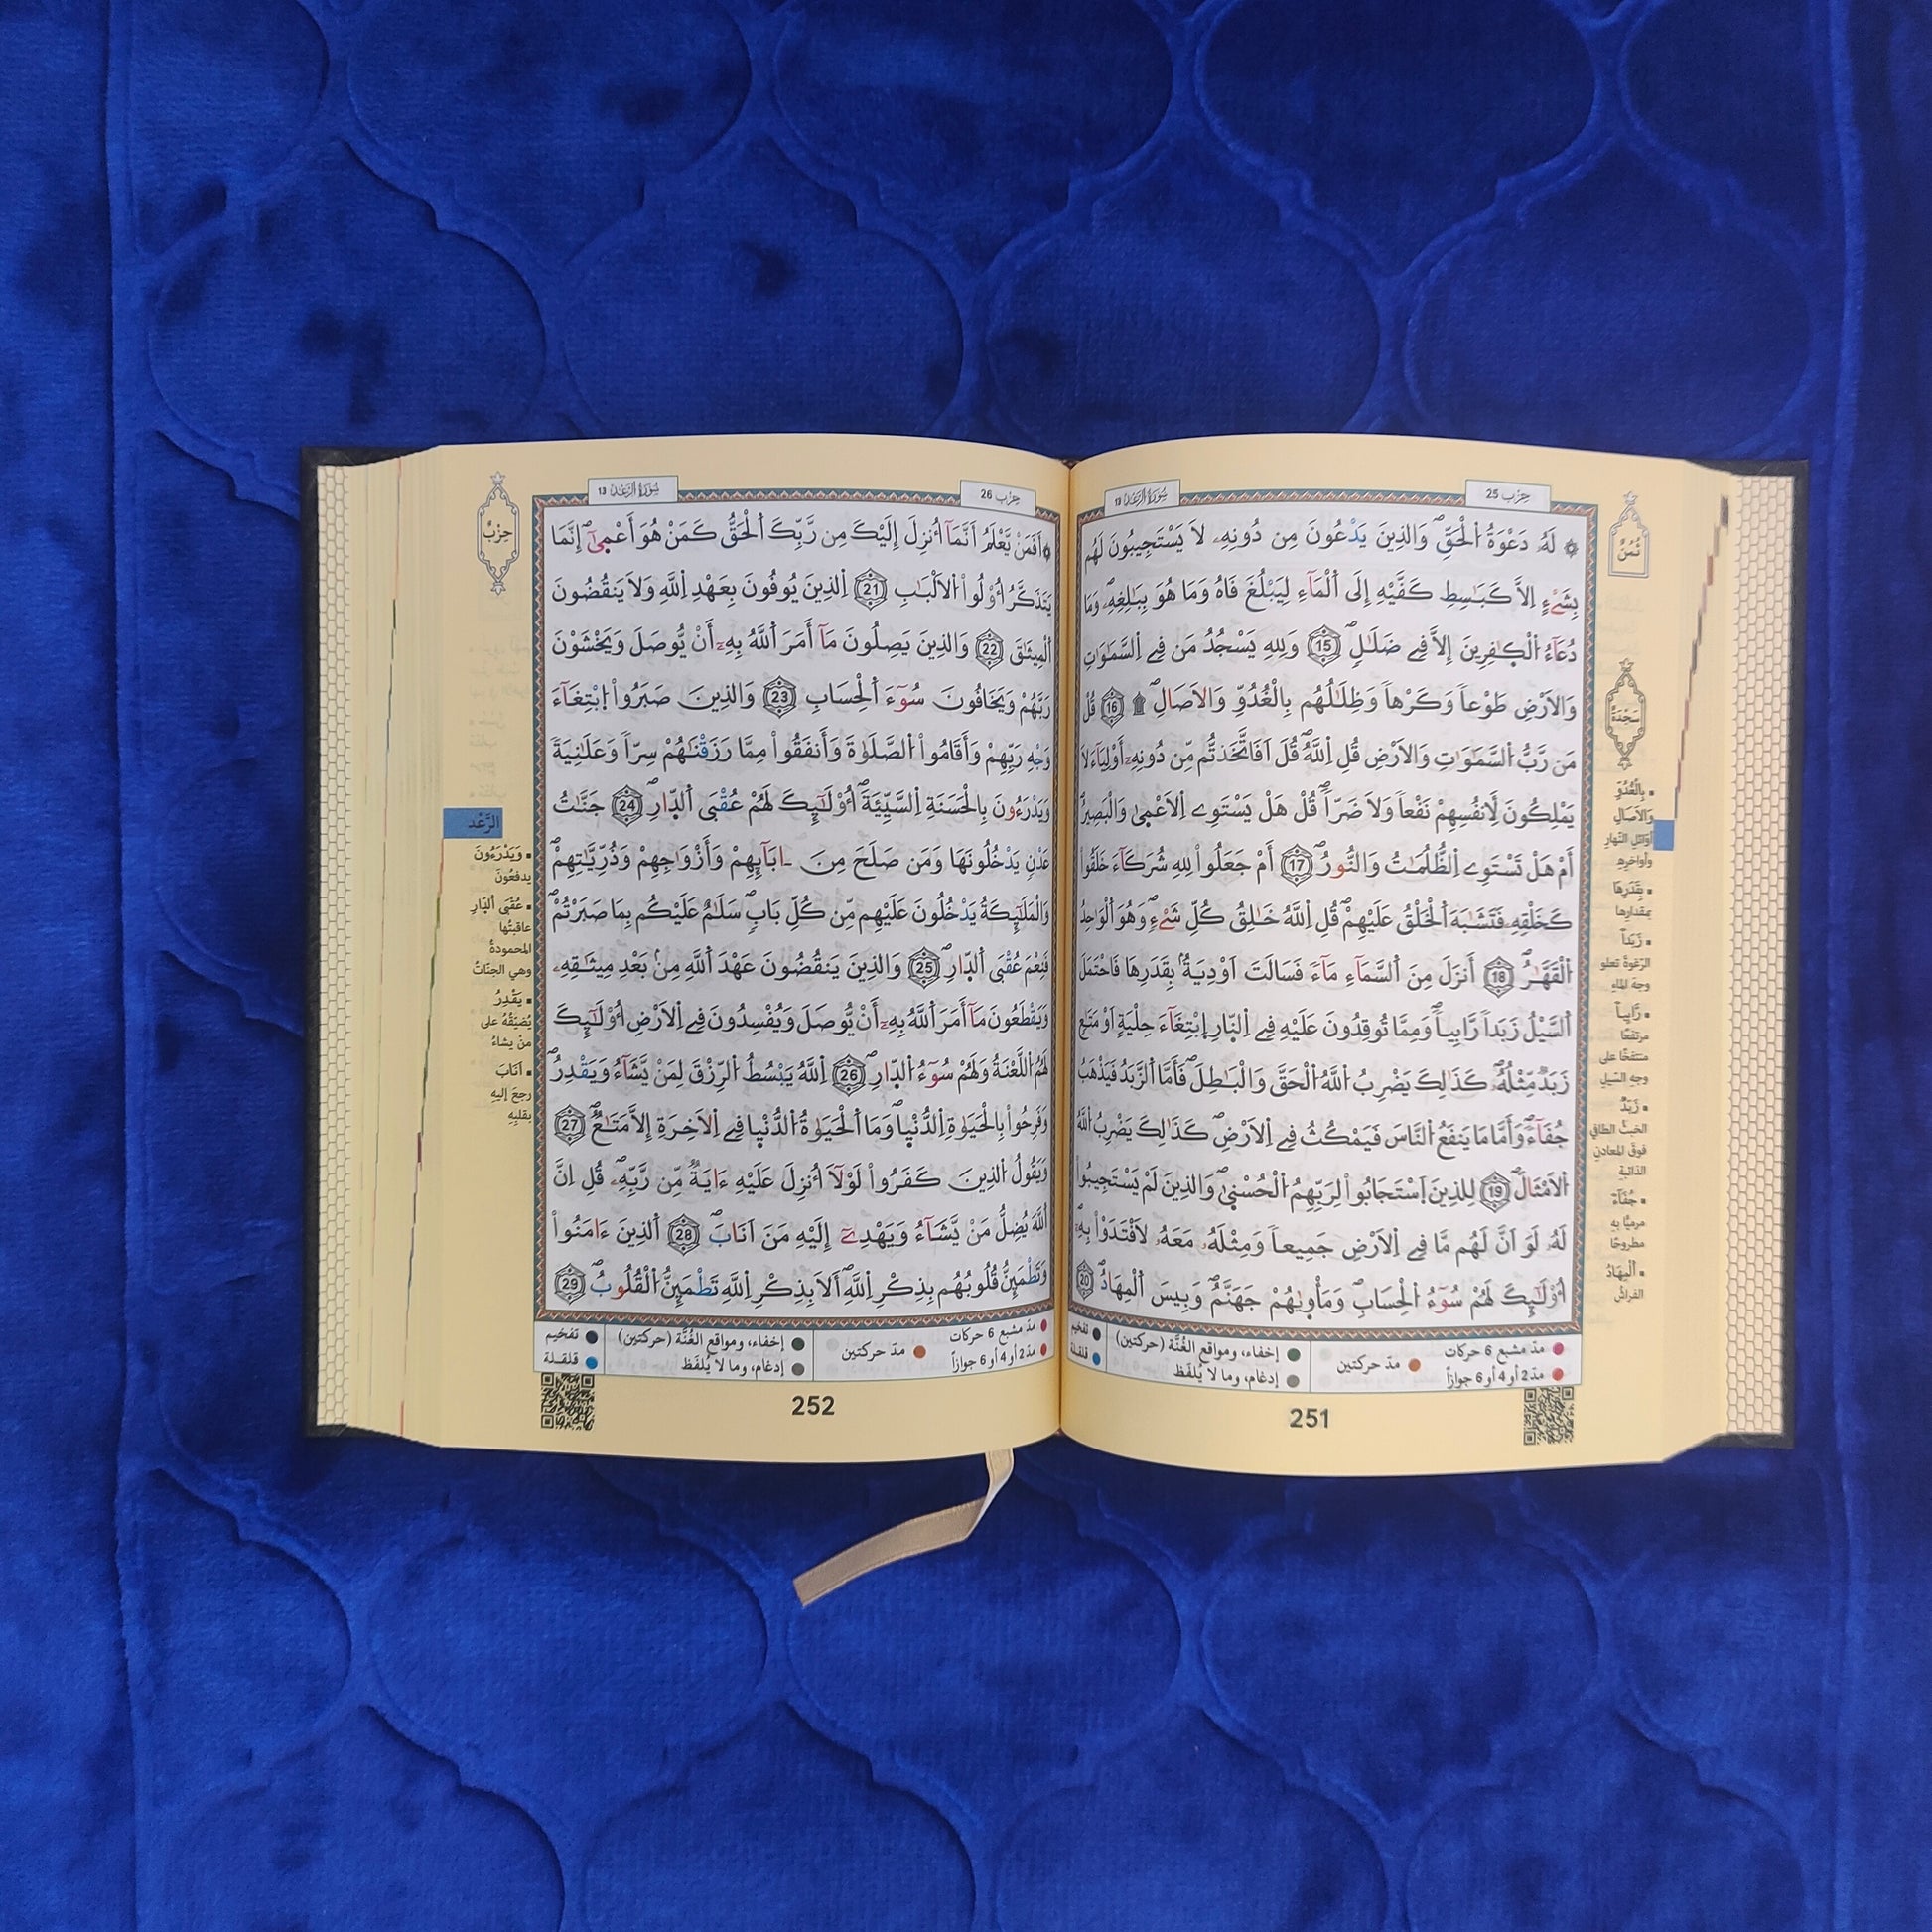 سُورَةُ الرَّعْدِ 13
حِزْب 25
۞ لَهُۥ دَعْوَةُ اُ۬لْحَقِّۖ وَالذِينَ يَدْعُونَ مِن دُونِهِۦ لَا يَسْتَجِيبُونَ لَهُم
بِشَےْءٍ اِلَّا كَبَٰسِطِ كَفَّيْهِ إِلَى اَ۬لْمَآءِ لِيَبْلُغَ فَاهُ وَمَا هُوَ بِبَٰلِغِهِۦۖ وَمَا
دُعَآءُ اُ۬لْكٰ۪فِرِينَ إِلَّا فِے ضَلَٰلٍۖ 15 وَلِلهِ يَسْجُدُ مَن فِے اِ۬لسَّمَٰوَٰتِ
وَالَارْضِ طَوْعاً وَكَرْهاً وَظِلَٰلُهُم بِالْغُدُوِّ وَالَاصَالِۖ ۩ 16 قُلْ
مَن رَّبُّ اُ۬لسَّمَٰوَٰتِ وَالَارْضِ قُلِ اِ۬للَّهُۖ قُلَ اَفَاتَّخَذتُّم مِّن دُونِهِۦٓ أَوْلِيَآءَ لَا
يَمْلِكُونَ لِأَنفُسِهِمْ نَفْعاً وَلَا ضَرّاًۖ قُلْ هَلْ يَسْتَوِے اِ۬لَاعْم۪يٰ وَالْبَصِيرُ
أَمْ هَلْ تَسْتَوِے اِ۬لظُّلُمَٰتُ وَالنُّورُۖ 17 أَمْ جَعَلُواْ لِلهِ شُرَكَآءَ خَلَقُواْ
كَخَلْقِهِۦ فَتَشَٰبَهَ اَ۬لْخَلْقُ عَلَيْهِمْۖ قُلِ اِ۬للَّهُ خَٰلِقُ كُلِّ شَےْءٍۖ وَهُوَ اَ۬لْوَٰحِدُ
اُ۬لْقَهَّٰرُۖ 18 أَنزَلَ مِنَ اَ۬لسَّمَآءِ مَآءً فَسَالَتَ اَوْدِيَةُۢ بِقَدَرِهَا فَاحْتَمَلَ
اَ۬لسَّيْلُ زَبَداً رَّابِياًۖ وَمِمَّا تُوقِدُونَ عَلَيْهِ فِے اِ۬لنّ۪ارِ اِ۪بْتِغَآءَ حِلْيَةٍ اَوْ مَتَٰعٍ
زَبَدٌ مِّثْلُهُۥۖ كَذَٰلِكَ يَضْرِبُ اُ۬للَّهُ اُ۬لْحَقَّ وَالْبَٰطِلَۖ فَأَمَّا اَ۬لزَّبَدُ فَيَذْهَبُ
جُفَآءًۖ وَأَمَّا مَا يَنفَعُ اُ۬لنَّاسَ فَيَمْكُثُ فِے اِ۬لَارْضِۖ كَذَٰلِكَ يَضْرِبُ اُ۬للَّهُ
اُ۬لَامْثَالَۖ 19 لِلذِينَ اَ۪سْتَجَابُواْ لِرَبِّهِمُ اُ۬لْحُسْن۪يٰۖ وَالذِينَ لَمْ يَسْتَجِيبُواْ
لَهُۥ لَوَ اَنَّ لَهُم مَّا فِے اِ۬لَارْضِ جَمِيعاً وَمِثْلَهُۥ مَعَهُۥ لَافْتَدَوْاْ بِهِۦٓۖ
أُوْلَٰٓئِكَ لَهُمْ سُوٓءُ اُ۬لْحِسَابِۖ وَمَأْو۪يٰهُمْ جَهَنَّمُۖ وَبِيسَ اَ۬لْمِهَادُۖ 20
ثُمُنٌ
سَجْدَةٌ
▪ بِالْغُدُوِّ
وَالَاصَالِ
أوائلِ النّهارِ
وأواخرِهِ
▪ بِقَدَرِهَا
بمقدارِها
▪ زَبَداً
الرّغوةَ تعلو
وجهَ الماءِ
▪ رَّابِياً
مرتفعًا
منتفخًا على
وجهِ السّيلِ
▪ زَبَدٌ
الخبثُ الطّافي
فوقَ المعادنِ
الذّائبةِ
▪ جُفَآءً
مرميًّا بهِ
مطروحًا
▪ اَ۬لْمِهَادُ
الفراشُ
مدّ مشبع 6 حركات
مدّ 2 أو 4 أو 6 جوازاً
مدّ حركتين
إخفاء، ومواقع الغُنَّة (حركتين)
إدغام، وما لا يُلفَظ
تفخيم
قلقلة
251
حِزْب 26
سُورَةُ الرَّعْدِ 13
۞ أَفَمَنْ يَّعْلَمُ أَنَّمَآ أُنزِلَ إِلَيْكَ مِن رَّبِّكَ اَ۬لْحَقُّ كَمَنْ هُوَ أَعْم۪يٰٓۖ إِنَّمَا
يَتَذَكَّرُ أُوْلُواْ اُ۬لَالْبَٰبِ 21 اِ۬لذِينَ يُوفُونَ بِعَهْدِ اِ۬للَّهِ وَلَا يَنقُضُونَ
اَ۬لْمِيثَٰقَ 22 وَالذِينَ يَصِلُونَ مَآ أَمَرَ اَ۬للَّهُ بِهِۦٓ أَنْ يُّوصَلَ وَيَخْشَوْنَ
رَبَّهُمْ وَيَخَافُونَ سُوٓءَ اَ۬لْحِسَابِ 23 وَالذِينَ صَبَرُواْ اُ۪بْتِغَآءَ
وَجْهِ رَبِّهِمْ وَأَقَامُواْ اُ۬لصَّلَوٰةَ وَأَنفَقُواْ مِمَّا رَزَقْنَٰهُمْ سِرّاً وَعَلَٰنِيَةً
وَيَدْرَءُونَ بِالْحَسَنَةِ اِ۬لسَّيِّئَةَۖ أُوْلَٰٓئِكَ لَهُمْ عُقْبَى اَ۬لدّ۪ارِۖ 24 جَنَّٰتُ
عَدْنٍ يَدْخُلُونَهَا وَمَن صَلَحَ مِنَ ـابَآئِهِمْ وَأَزْوَٰجِهِمْ وَذُرِّيَّٰتِهِمْۖ
وَالْمَلَٰٓئِكَةُ يَدْخُلُونَ عَلَيْهِم مِّن كُلِّ بَابٖۖ سَلَٰمٌ عَلَيْكُم بِمَا صَبَرْتُمْۖ
فَنِعْمَ عُقْبَى اَ۬لدّ۪ارِۖ 25 وَالذِينَ يَنقُضُونَ عَهْدَ اَ۬للَّهِ مِنۢ بَعْدِ مِيثَٰقِهِۦ
وَيَقْطَعُونَ مَآ أَمَرَ اَ۬للَّهُ بِهِۦٓ أَنْ يُّوصَلَ وَيُفْسِدُونَ فِے اِ۬لَارْضِ أُوْلَٰٓئِكَ
لَهُمُ اُ۬للَّعْنَةُ وَلَهُمْ سُوٓءُ اُ۬لدّ۪ارِۖ 26 اِ۬للَّهُ يَبْسُطُ اُ۬لرِّزْقَ لِمَنْ يَّشَآءُ وَيَقْدِرُۖ
وَفَرِحُواْ بِالْحَيَوٰةِ اِ۬لدُّنْي۪اۖ وَمَا اَ۬لْحَيَوٰةُ اُ۬لدُّنْي۪ا فِے اِ۬لَاخِرَةِ إِلَّا مَتَٰعٌۖ 27
وَيَقُولُ اُ۬لذِينَ كَفَرُواْ لَوْلَآ أُنزِلَ عَلَيْهِ ءَايَةٌ مِّن رَّبِّهِۦۖ قُلِ اِنَّ
اَ۬للَّهَ يُضِلُّ مَنْ يَّشَآءُ وَيَهْدِےٓ إِلَيْهِ مَنَ اَنَابَۖ 28 اَ۬لذِينَ ءَامَنُواْ
وَتَطْمَئِنُّ قُلُوبُهُم بِذِكْرِ اِ۬للَّهِۖ أَلَا بِذِكْرِ اِ۬للَّهِ تَطْمَئِنُّ اُ۬لْقُلُوبُۖ 29
حِزْبٌ
الرَّعْد
▪ وَيَدْرَءُونَ
يدفعُونَ
▪ عُقْبَى اَ۬لدّ۪ارِ
عاقبتُها
المحمودةُ
وهي الجنّاتُ
▪ يَقْدِرُ
يُضيّقُهُ على
منْ يشاءُ
▪ اَنَابَ
رجعَ إليهِ
بقلبِهِ
مدّ مشبع 6 حركات
مدّ 2 أو 4 أو 6 جوازاً
مدّ حركتين
إخفاء، ومواقع الغُنَّة (حركتين)
إدغام، وما لا يُلفَظ
تفخيم
قلقلة
252